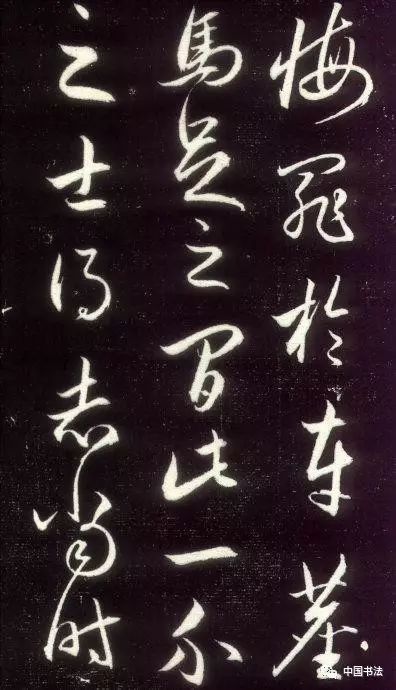 悔罪於車塵
馬足之間此一介
之士得志當時
中国书法